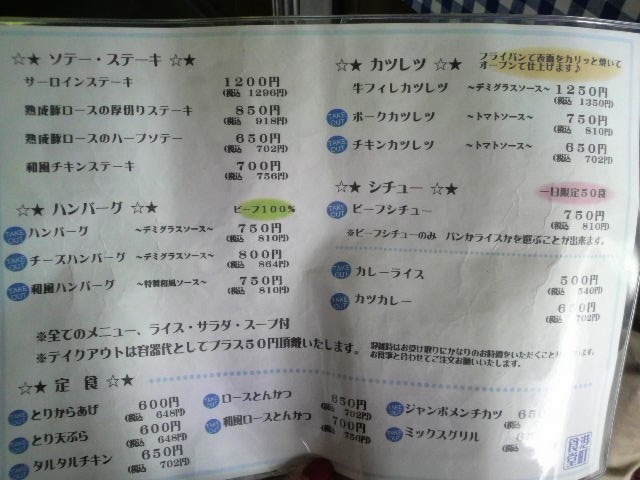 ☆★ ソテー・ステーキ ☆★
サーロインステーキ 1200円
(税込 1296円)
熟成豚ロースの厚切りステーキ 850円
(税込 918円)
熟成豚ロースのハーブソテー 650円
(税込 702円)
和風チキンステーキ 700円
(税込 756円)
☆★ ハンバーグ ☆★ ビーフ100%
TAKE OUT ハンバーグ ~デミグラスソース~ 750円
(税込 810円)
TAKE OUT チーズハンバーグ ~デミグラスソース~ 800円
(税込 864円)
TAKE OUT 和風ハンバーグ ~特製和風ソース~ 750円
(税込 810円)
☆★ カツレツ ☆★
フライパンで表面をカリッと焼いて
オーブンで仕上げます♪
牛フィレカツレツ ~デミグラスソース~ 1250円
(税込 1350円)
TAKE OUT ポークカツレツ ~トマトソース~ 750円
(税込 810円)
TAKE OUT チキンカツレツ ~トマトソース~ 650円
(税込 702円)
☆★ シチュー ☆★ 一日限定50食
TAKE OUT ビーフシチュー 750円
(税込 810円)
※ビーフシチューのみ パンかライスかを選ぶことが出来ます。
TAKE OUT カレーライス 500円
(税込 540円)
TAKE OUT カツカレー 650円
(税込 702円)
※全てのメニュー、ライス・サラダ・スープ付
※テイクアウトは容器代としてプラス50円頂戴いたします。
混雑時はお受け取りにかなりのお時間をいただくこと
お食事と合わせてご注文お願いいたします。
☆★ 定 食 ☆★
TAKE OUT とりからあげ 600円
(税込 648円)
TAKE OUT とり天ぷら 600円
(税込 648円)
TAKE OUT タルタルチキン 650円
(税込 702円)
TAKE OUT ロースとんかつ 650円
(税込 702円)
TAKE OUT 和風ロースとんかつ 700円
(税込 756円)
TAKE OUT ジャンボメンチカツ 650
(税込
TAKE OUT ミックスグリル
(税込